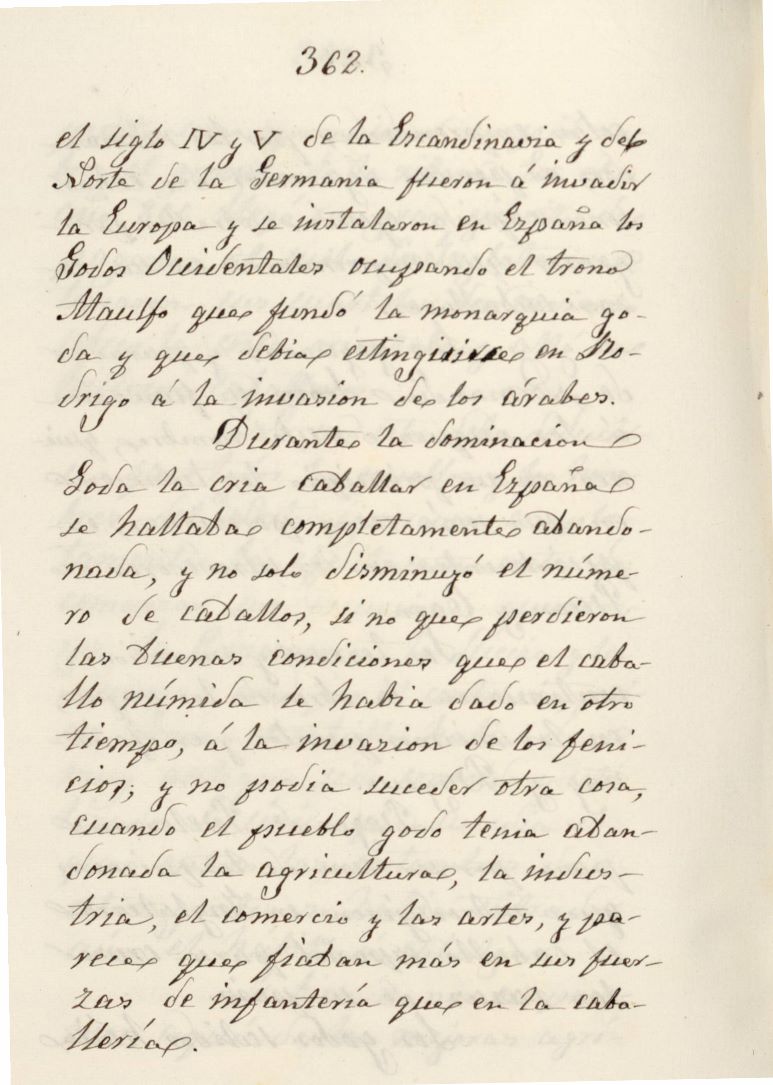 362.
el siglo IV y V de la Escandinavia y del
Norte de la Germania fueron á invadir
la Europa y se instalaron en España los
Godos Occidentales ocupando el trono
Ataulfo que fundó la monarquia go-
da y que debia estinguirse en Ro-
drigo á la invasion de los árabes.
Durante la dominacion
Goda la cria caballar en España
se hallaba completamente abando-
nada, y no solo disminuyó el núme-
ro de caballos, si no que perdieron
las buenas condiciones que el caba-
llo númida le habia dado en otro
tiempo, á la invasion de los feni-
cios; y no podia suceder otra cosa,
cuando el pueblo godo tenia aban-
donada la agricultura, la indus-
tria, el comercio y las artes, y pa-
rece que fiaban más en sus fuer-
zas de infantería que en la caba-
llería.